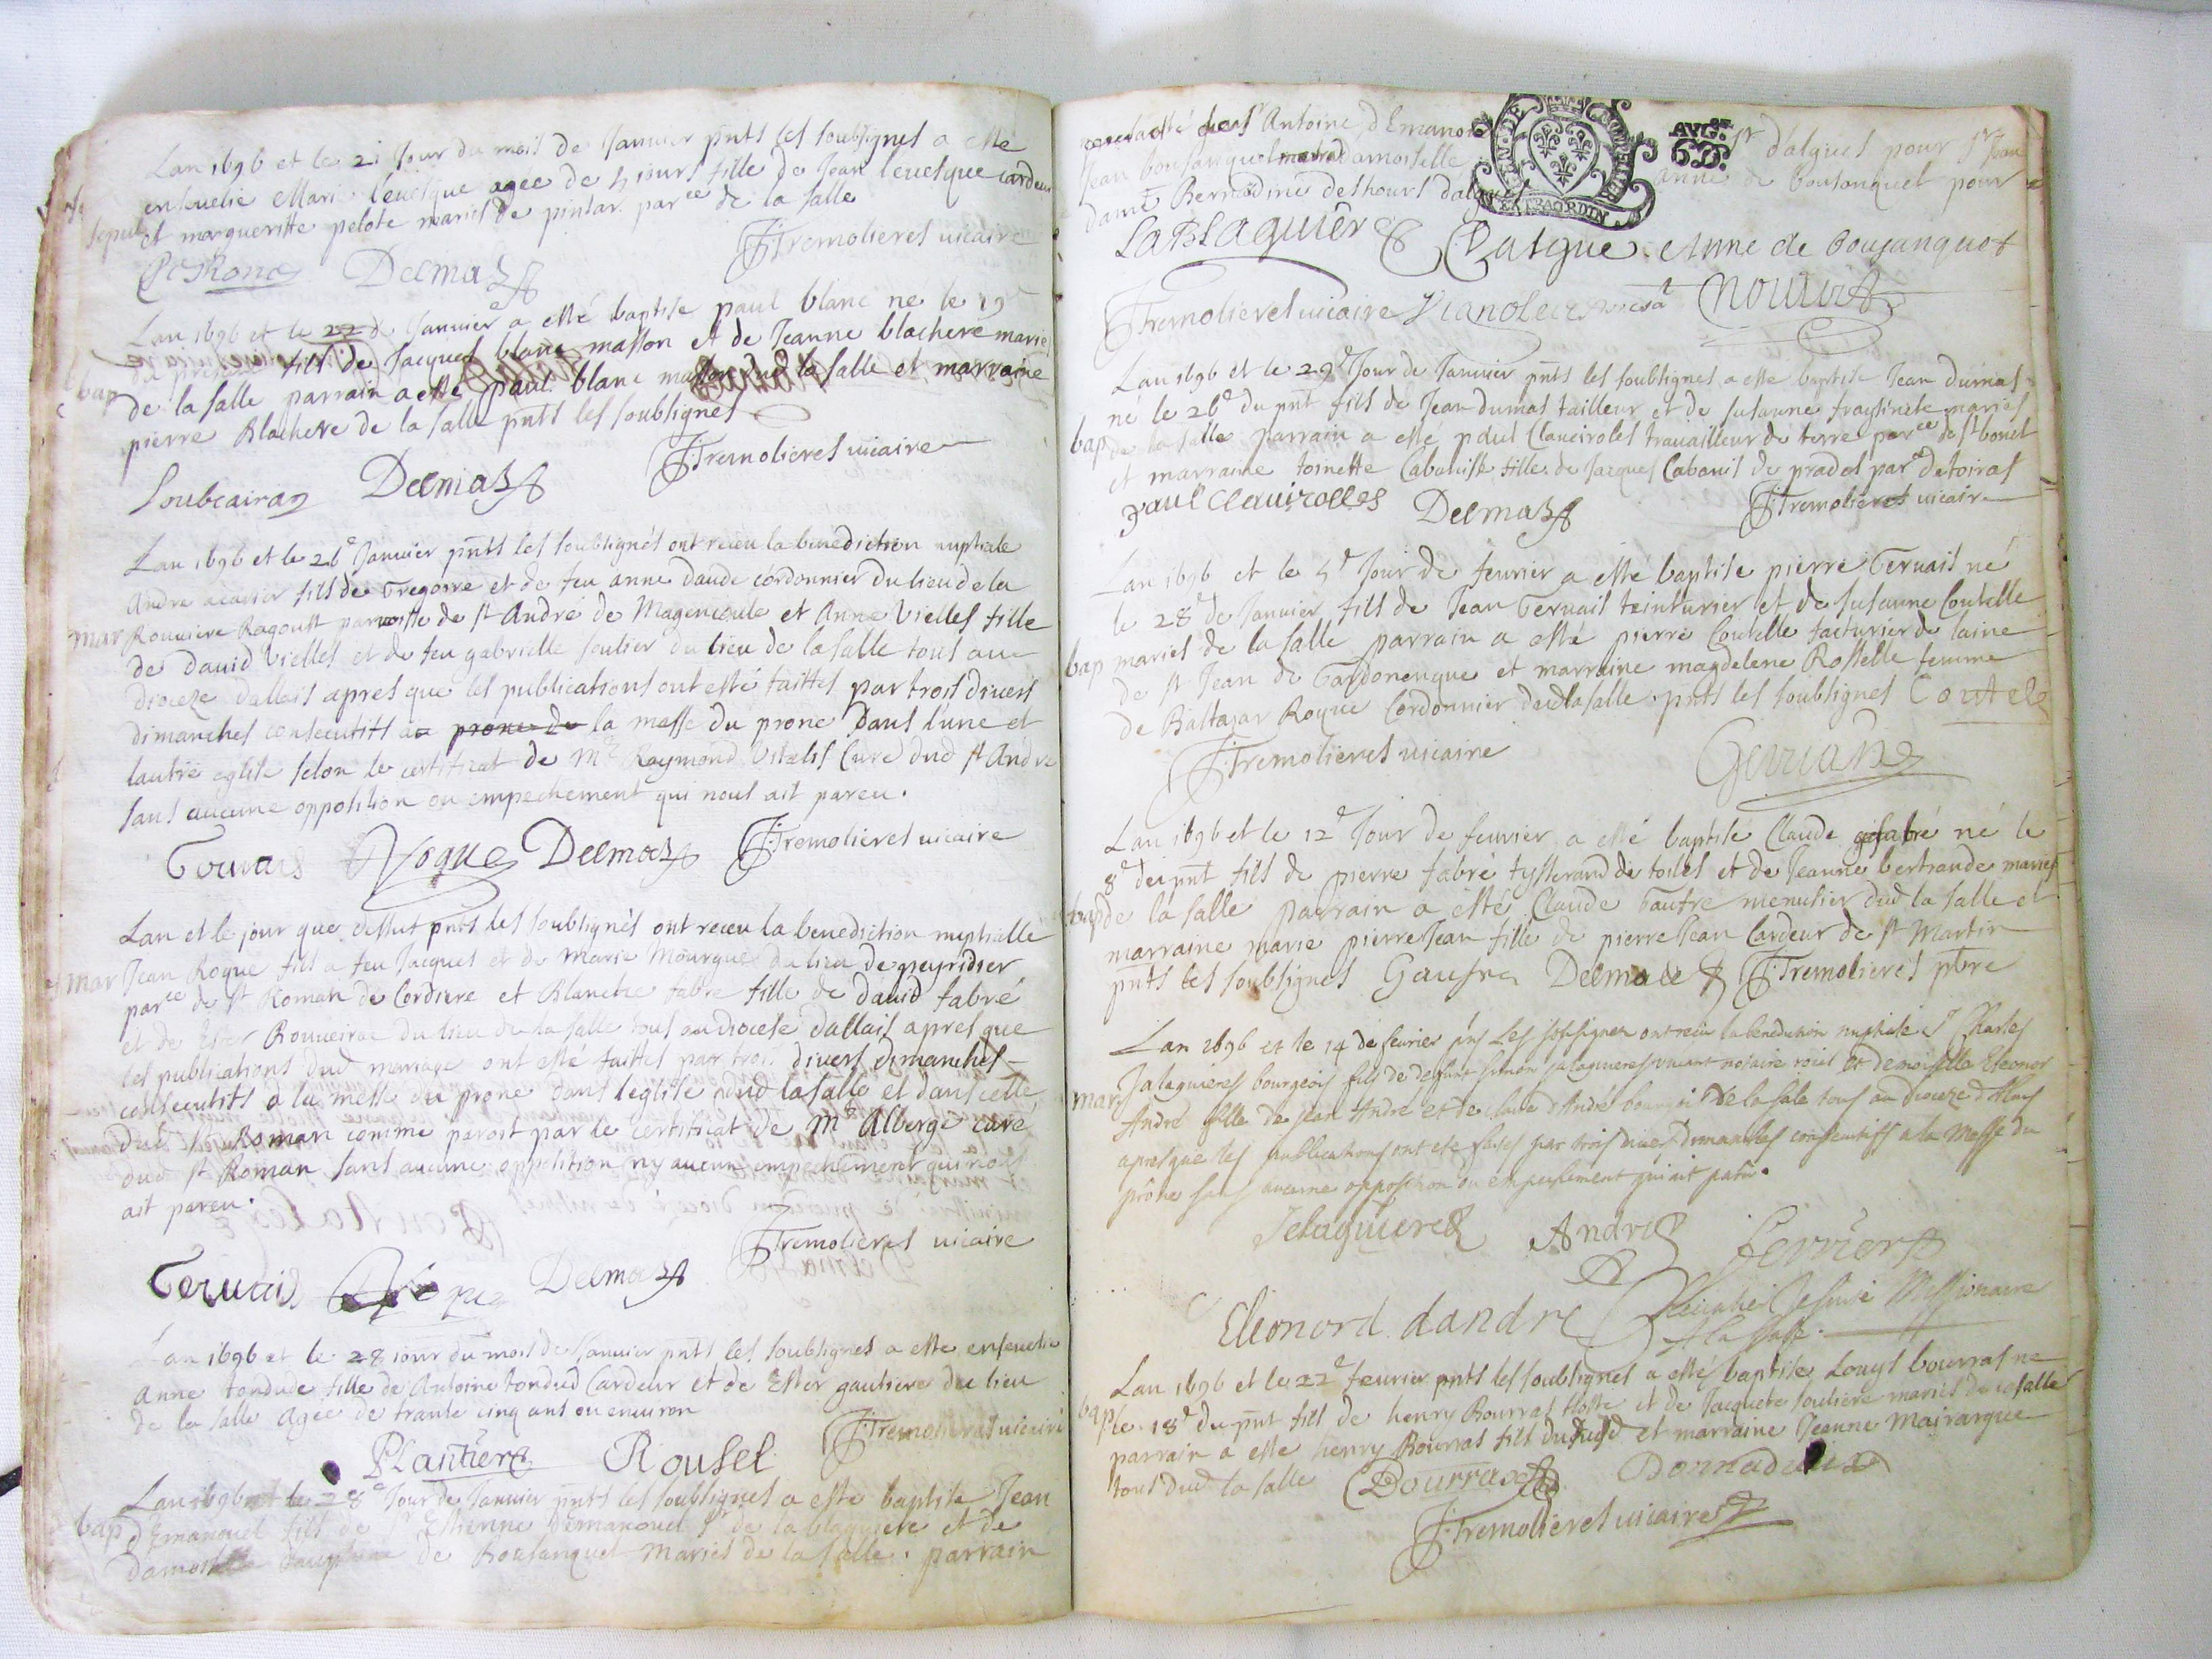 Lan 1696 et le 21 Jour du mois de Janvier pnts les soubsignes a esté
ensevelie Marie levesque agee de 5 jours fille de Jean levesque cardeur
sepul et margueritte pelote mariés de pintar parce de la salle
F Tremolieres vicaire
Delmas
Lan 1696 et le 22 de Janvier a esté baptise paul blanc né le 19e
du present fils de Jacques blanc masson et de Jeanne blachere mariés
bap
de la salle parrain a esté paul blanc masson dud la salle et marraine
pierre Blachere de la salle pnts les soubsignes
F Tremolieres vicaire
Soubeiran Delmas
Lan 1696 et le 26e Janvier pnts les soubsignés ont receu la benediction nuptiale
Andre fils de Gregoire et de feu anne daude cordonnier du lieu de la
mar Rouviere Ragoust parroisse de st André de Magencoule et Anne Vielles fille
de david Vielles et de feu gabrielle soulier du lieu de la salle tous au
dioceze dallais apres que les publications ont esté faittes par trois divers
dimanches consecutifs a prone de la messe du prone dans lune et
lautre eglise selon le certificat de Mre Raymond Vitalis Curé dud st André
sans aucune opposition ou empechement qui nous ait pareu.
Gervais Roque Delmas F Tremolieres vicaire
Lan et le jour que dessus pnts les soubsignés ont receu la benediction nuptialle
mar Jean Roque fils a feu Jacques et de Marie Mourgue du lieu de peyridier
parce de st Roman de Cordiere et Blanche fabre fille de david fabré
et de Ester Rouveirac du lieu de la salle tous au diocese dallais apres que
les publications dud mariage ont esté faittes par trois divers dimanches
consecutifs a la messe du prone dans leglise dud la salle et dans celle
dud st Roman comme paroit par le certificat de Mre Alberge curé
dud st Roman sans aucune opposition ny aucun empechement qui nous
ait pareu.
F Tremolieres vicaire
Gervais Delmas
Lan 1696 et le 28 jour du mois de Janvier pnts les soubsignes a este ensevelie
anne tondude fille de Antoine tondud Cardeur et de Ester gautiere du lieu
de la salle agee de trante cinq ans ou environ
F Tremolieres vicaire
Plantier Rousel
Lan 1696 et le 28e Jour de Janvier pnts les soubsignes a esté baptise Jean
bap dEmanouel fils de sr Estienne demanouel sr de la blaquiere et de
damoiselle de Bousanquet mariés de la salle. parrain
a esté Antoine dEmanouel
sr dalgues pour sr Jean
Jean bousanquet damoiselle anne de bousanquet pour
dame Bernardine deshours dalgues
AVG.
EXTRAORDIN
LaBlaquière Dalgue Anne de Bousanquet
F Tremolieres vicaire
Lan 1696 et le 29e Jour de Janvier pnts les soubsignes a este baptise Jean dumas
né le 26e du pnt fils de Jean dumas tailleur et de susanne fraissinete mariés
bap de la salle parrain a esté paul Claveiroles travailleur de terre parce de st bonet
et marraine toinette Cabanisse fille de Jacques Cabanis de prades parce de toiras
paul Clavirolles Delmas F Tremolieres vicaire
Lan 1696 et le 5e Jour de fevrier a esté baptise pierre Gervais né
le 28e de Janvier fils de Jean Gervais teinturier et de susanne Coutelle
bap mariés de la salle parrain a esté pierre Coutelle facturier de laine
de st Jean de Gardonenque et marraine magdelene Rostelle femme
de Baltazar Roque Cordonnier dud la salle. pnts les soubsignes Coutele
F Tremolieres vicaire
Lan 1696 et le 12e Jour de fevrier a esté baptisé Claude fabré né le
8e du pnt fils de pierre fabré tysserand de toiles et de Jeanne bertrande mariés
bap de la salle parrain a esté Claude Gaufre menusier dud la salle et
marraine marie pierreJean fille de pierreJean Cardeur de st Martin
pnts les soubsignes Gaufre Delmas F Tremolieres ptre
Lan 1696 et le 14 de fevrier pns Les sousignez ont receu la benediction nuptiale sr Charles
mar Jalaguieres bourgeois fils de deffunt simon Jalaguieres vivant notaire roial et demoiselle Eleonor
André fille de Jean André et de d'André bourgeois de la sale tous au dioceze d'Alais
apres que les publications ont eté faites par trois divers dimanches consecutifs a la Messe du
prône sans aucune opposition ou empeschement qui ait paru.
Jalaguiere André Ferrier
Elionord dandre Jesuite Missionaire
A la salle.
Lan 1696 et le 22e fevrier pnts les soubsignes a esté baptise Louys bourras né
bap le 18e du pnt fils de henry Bourras hoste et de Jacquete souliere mariés de la salle
parrain a esté henry Bourras fils dud et marraine Jeanne Mairargue
tous dud la salle Bourras Donnadieu
F Tremolieres vicaire